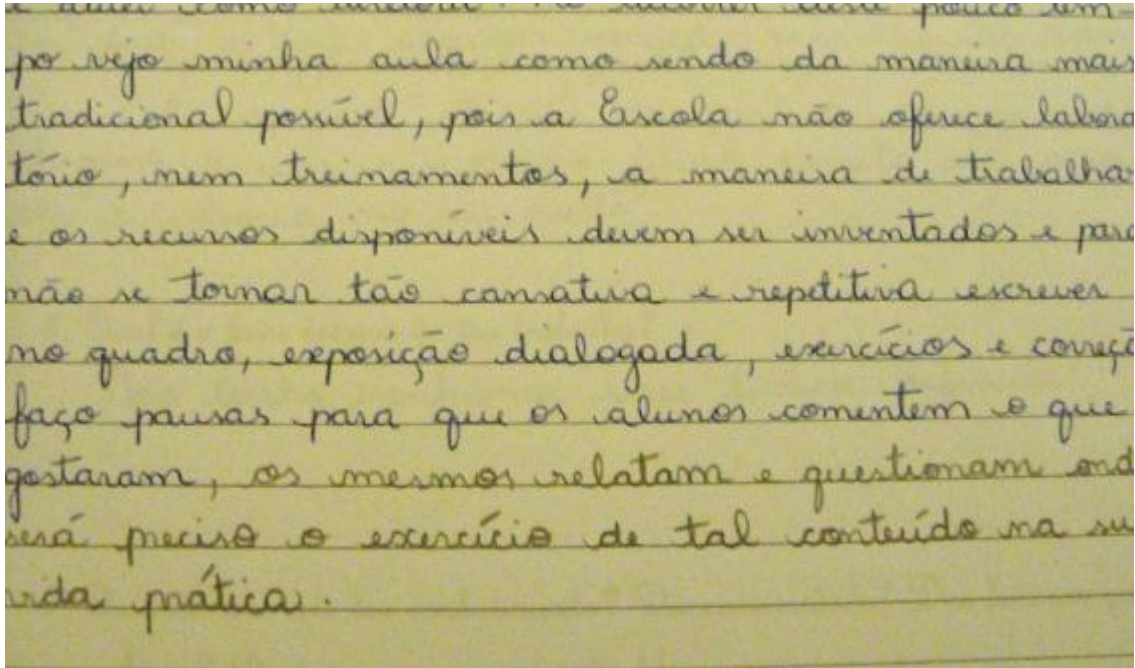 como pouco tem-
po vejo minha aula como sendo da maneira mais
tradicional possível, pois a Escola não oferece labora
tório, nem treinamentos, a maneira de trabalhar
e os recursos disponíveis devem ser inventados e para
não se tornar tão cansativa e repetitiva escrever
no quadro, exposição dialogada, exercícios e correçã
faço pausas para que os alunos comentem o que
gostaram, os mesmos relatam e questionam ond
será preciso o exercício de tal conteúdo na su
vida prática.